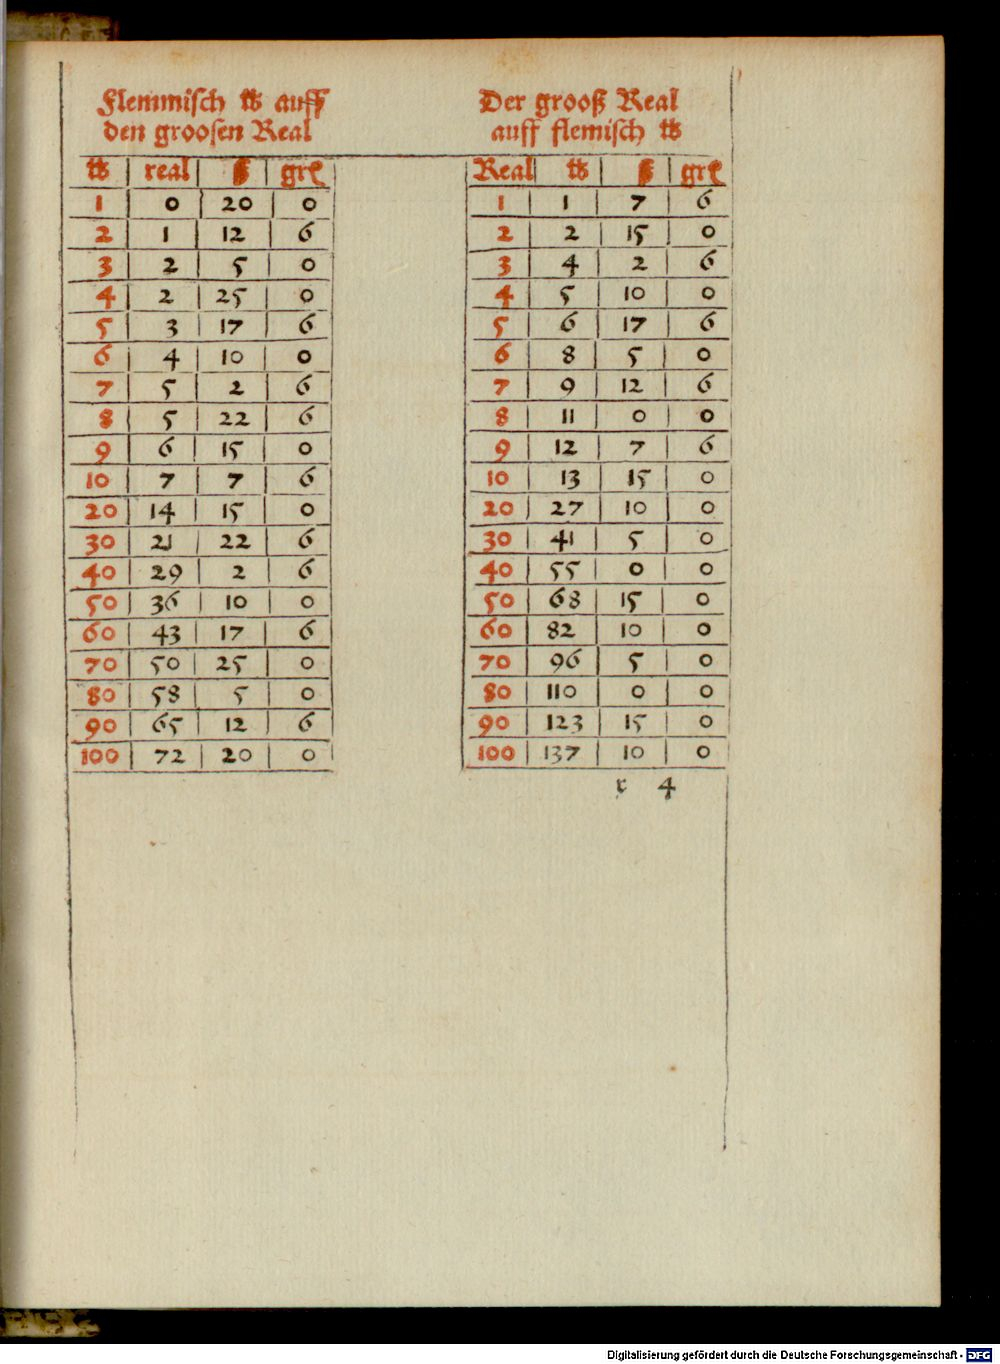 Flemmisch ℔ auff
den groosen Real
℔ real ß grß
1 0 20 0
2 1 12 6
3 2 5 0
4 2 25 0
5 3 17 6
6 4 10 0
7 5 2 6
8 5 22 6
9 6 15 0
10 7 7 6
20 14 15 0
30 21 22 6
40 29 2 6
50 36 10 0
60 43 17 6
70 50 25 0
80 58 5 0
90 65 12 6
100 72 20 0
Der grooß Real
auff flemisch ℔
Real ℔ ß grß
1 1 7 6
2 2 15 0
3 4 2 6
4 5 10 0
5 6 17 6
6 8 5 0
7 9 12 6
8 11 0 0
9 12 7 6
10 13 15 0
20 27 10 0
30 41 5 0
40 55 0 0
50 68 15 0
60 82 10 0
70 96 5 0
80 110 0 0
90 123 15 0
100 137 10 0
r 4
Digitalisierung gefördert durch die Deutsche Forschungsgemeinschaft - DFG